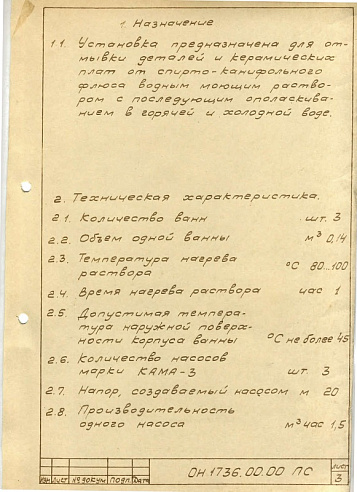 1. Назначение
1.1. Установка предназначена для от-
мывки деталей и керамических
плат от спирто-канифольного
флюса водным моющим раство-
ром с последующим ополаскива-
нием в горячей и холодной воде.
2. Техническая характеристика.
2.1. Количество ванн шт. 3
2.2. Объем одной ванны м³ 0,14
2.3. Температура нагрева
раствора °С 80...100
2.4. Время нагрева раствора час 1
2.5. Допустимая темпера-
тура наружной поверх-
ности корпуса ванны °С не более 45
2.6. Количество насосов
марки КАМА-3 шт 3
2.7. Напор, создаваемый насосом м 20
2.8. Производительность
одного насоса м³час 1,5
ОН.1736.00.00 ПС
лист
3
Изм Лист № докум Подп. Дата